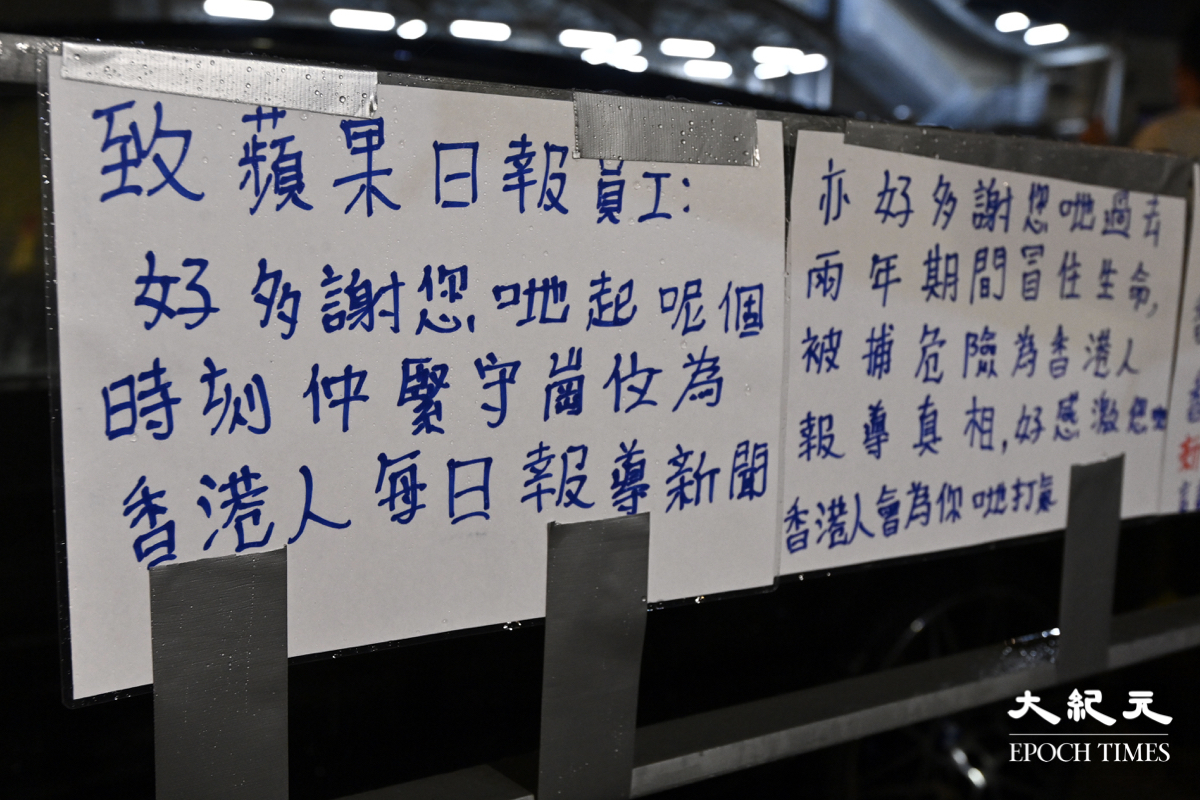 致蘋果日報員工:
好多謝您哋起呢個
時刻仲緊守崗位為
香港人每日報導新聞
亦好多謝您哋過去
兩年期間冒住生命,
被捕危險為香港人
報導真相,好感激您哋
香港人會為你哋打氣
大紀元
EPOCH TIMES